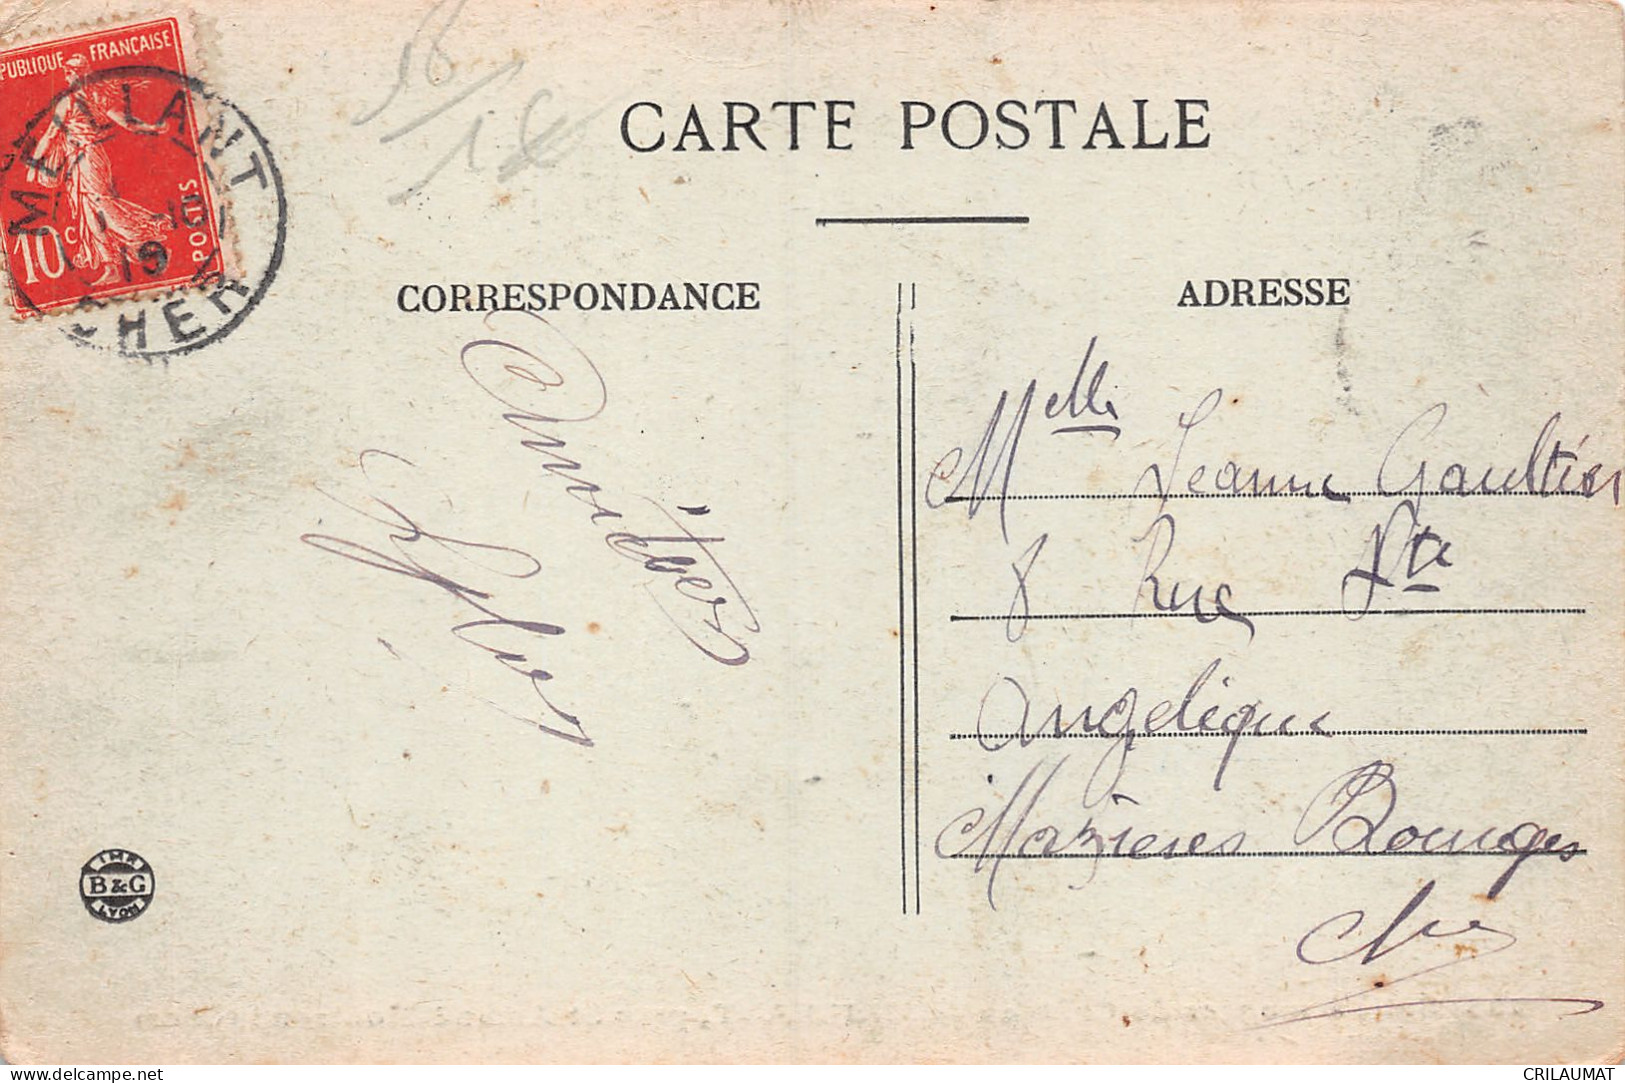 PUBLIQUE FRANÇAISE
10c
POSTES
MEILLANT
19
CHER
CARTE POSTALE
CORRESPONDANCE
ADRESSE
Melle Jeanne Gaultier
8 Rue Ste
Angelique
Mazieres Bourges
Cher
Amitiés
IMP.
B & G
LYON
delcampe.net
CRILAUMAT